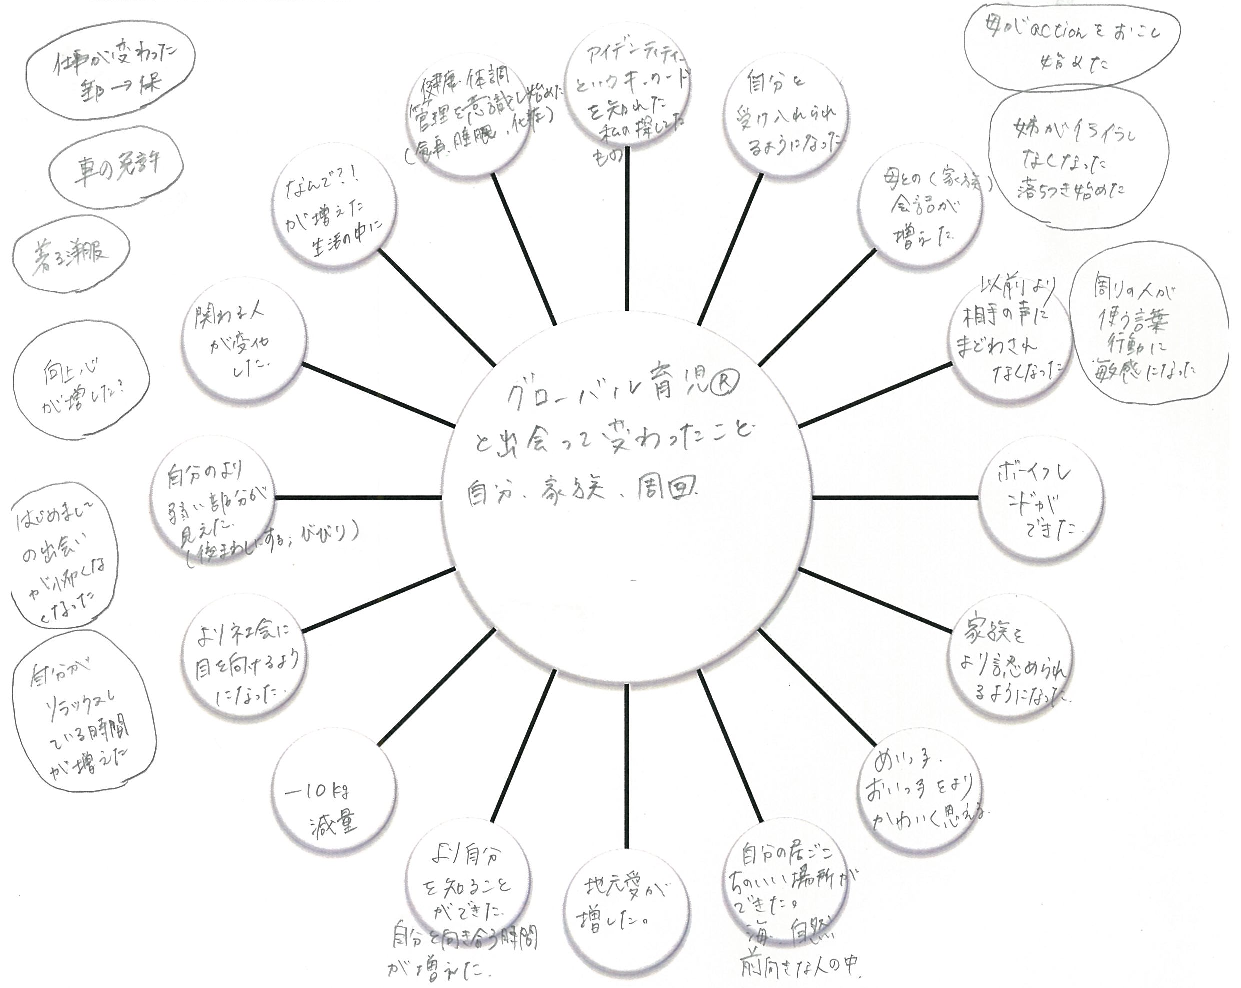 グローバル育児®
と出会って変わったこと
自分、家族、周囲
アイデンティティー
というキーワード
を知れた
私の探してた
もの
自分を
受け入れられ
るようになった
母との(家族)
会話が
増えた
以前より
相手の声に
まどわされ
なくなった
ボーイフレ
ンドが
できた
家族を
より認められ
るようになった
めいっ子、
おいっ子をより
かわいく思える
自分の居ごこ
ちのいい場所が
できた。
海、自然
前向きな人の中
地元愛が
増した。
より自分
を知ること
ができた
自分と向き合う時間
が増えた
-10kg
減量
より社会に
目を向けるよう
になった
自分のより
弱い部分が
見えた
(後まわしにする、びびり)
関わる人
が変化
した
なんで?!
が増えた
生活の中に
健康・体調
管理を意識し始めた
(食事、睡眠、化粧)
仕事が変わった
郵→保
車の免許
着る洋服
向上心
が増した?
はじめまして
の出会い
が怖くな
くなった
自分が
リラックスし
ている時間
が増えた
母がactionをおこし
始めた
姉がイライラし
なくなった
落ちつき始めた
周りの人が
使う言葉
行動に
敏感になった